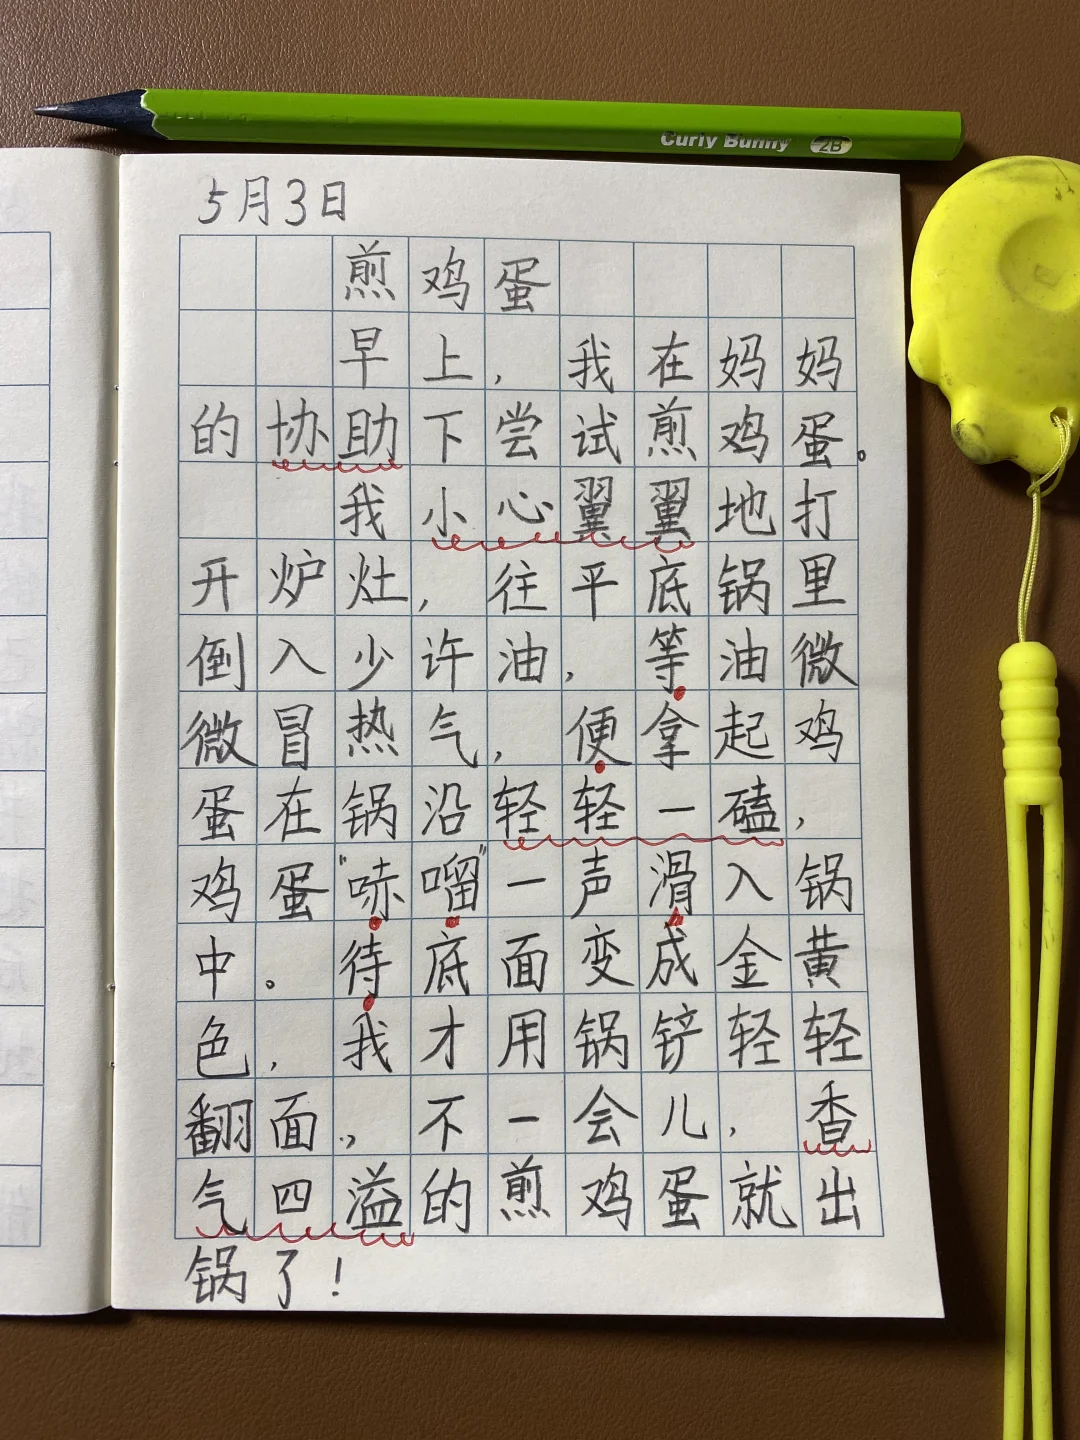 Curly Bunny 2B
5月3日
煎鸡蛋
早上，我在妈妈
的协助下尝试煎鸡蛋。
我小心翼翼地打
开炉灶，往平底锅里
倒入少许油，等油微
微冒热气，便拿起鸡
蛋在锅沿轻轻一磕，
鸡蛋“哧溜”一声滑入锅
中。待底面变成金黄
色，我才用锅铲轻轻
翻面，不一会儿，香
气四溢的煎鸡蛋就出
锅了！